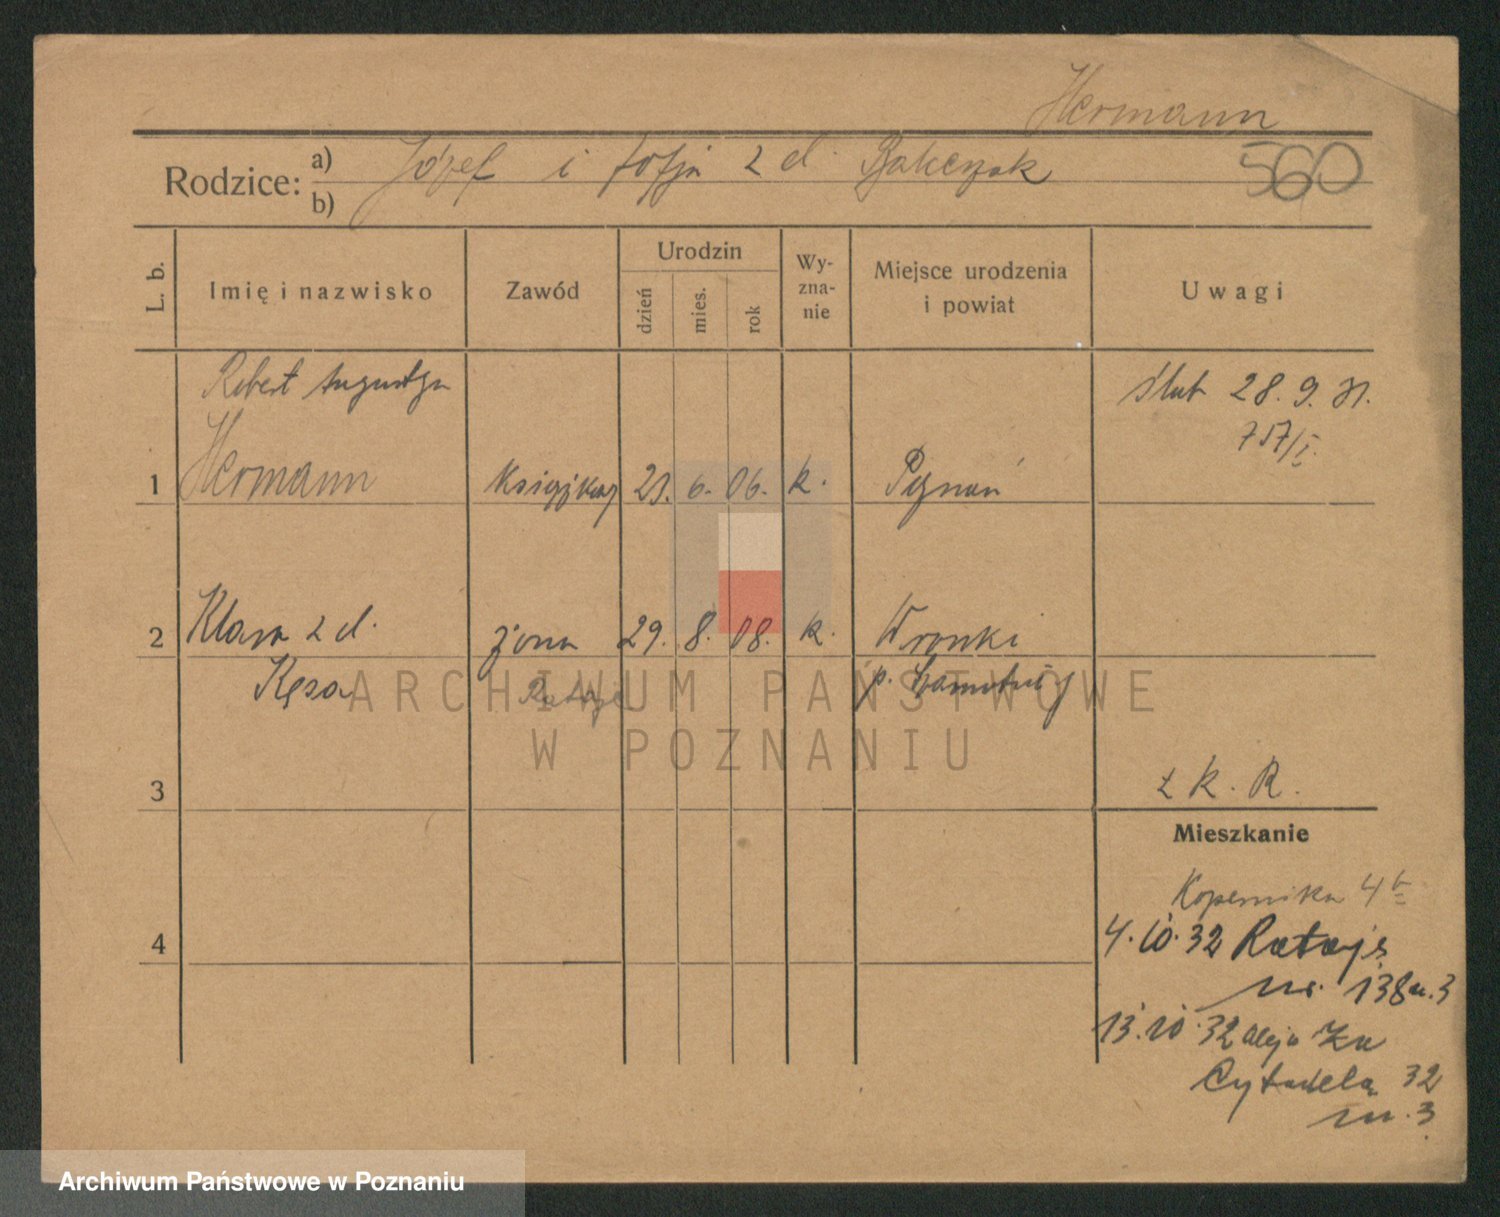 Hermann
Rodzice: a) Józef i Zofja z d. Bakczak 560
b)
L. b. Imię i nazwisko Zawód Urodzin dzień mies. rok Wy-zna-nie Miejsce urodzenia i powiat Uwagi
Robert Augustyn ślub 28. 9. 31.
757/I.
1 Hermann księgkowy 21. 6. 06. k. Poznań
2 Klara z d. żona 29. 8. 08. k. Wronki
Kęsa Rataje p. Szamotuły
ARCHIWUM PAŃSTWOWE
W POZNANIU
3 z k. R.
Mieszkanie
Kopernika 4b
4 4.10.32 Rataje
nr. 138 m. 3
13.10.32 aleja Za
Cytadelą 32
m. 3
Archiwum Państwowe w Poznaniu